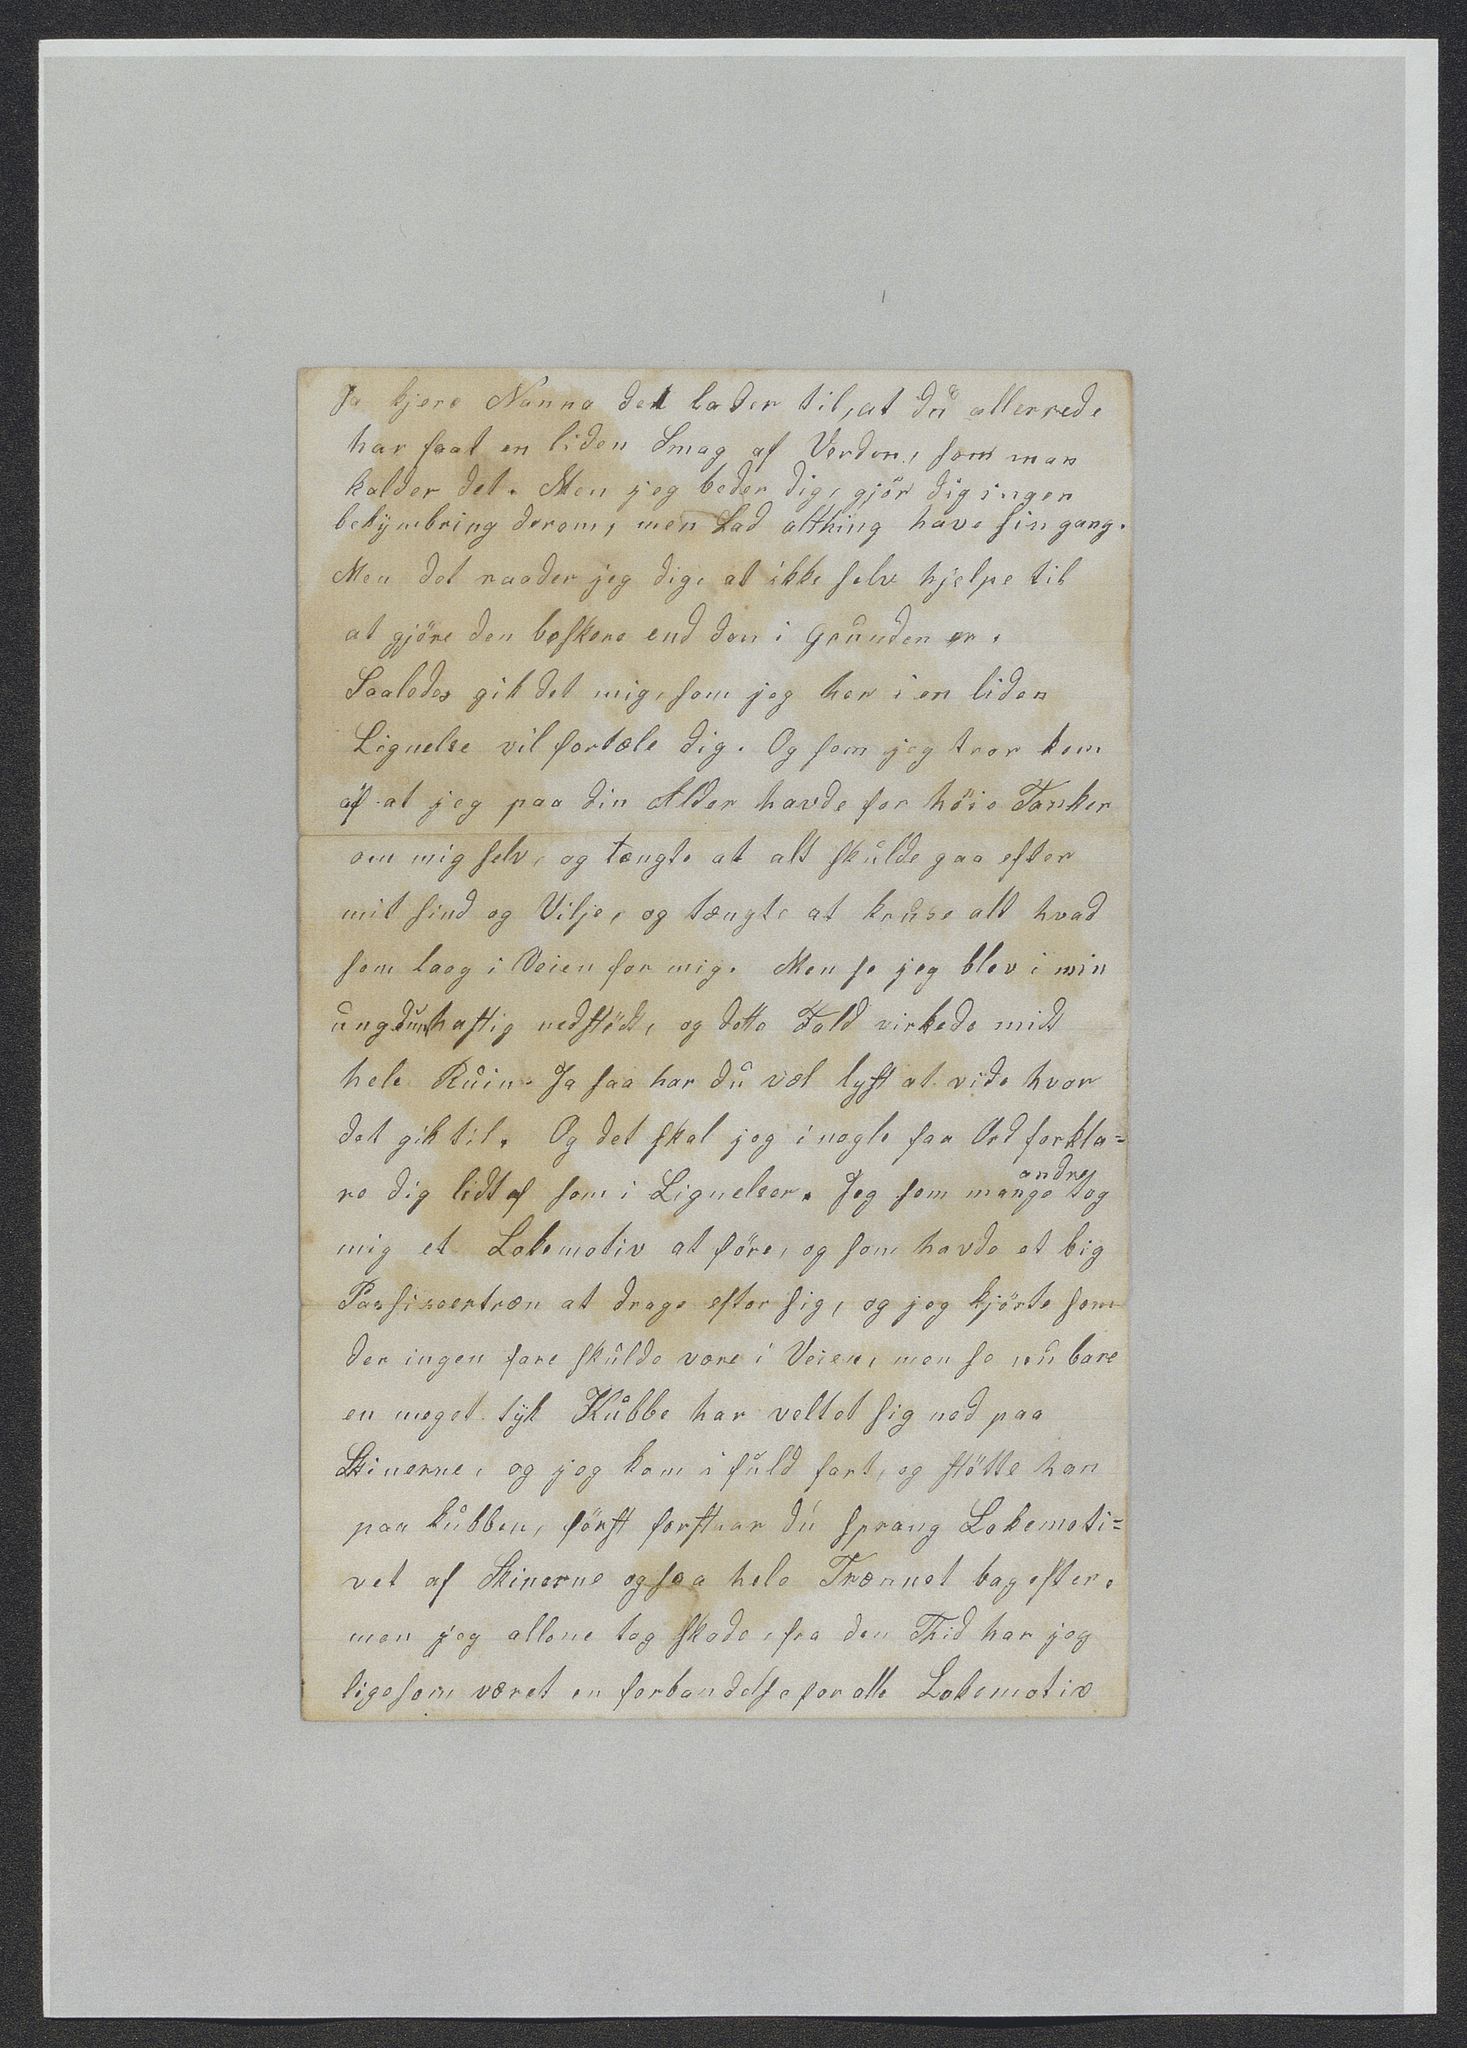 Ja kjere Nanna det lader til, at du allerrede
har faat en liden Smag af Verden, som man
kalder det. Men jeg beder dig, gjör dig ingen
bekymbring derom, men Lad althing have sin gang.
Men det raader jeg dig, at ikke selv hjelpe til
at gjöre den beskere end den i Grunden er.
Saaledes gik det mig, som jeg her i en liden
Lignelse vil fortæle dig. Og som jeg tror kom
af at jeg paa din Alder havde for höie Tanker
om mig selv, og tængte at alt skulde gaa efter
mit sind og Vilje, og tængte at kruse alt hvad
som laag i Veien for mig. Men se jeg blev i min
ungdum hastig nedstödt, og dette Fald virkede midt
hele Ruin. Ja saa har du vel lyst at vide hvor
det gik til. Og det skal jeg i nogle faa Ord forkla=
re dig lidt af som i Lignelser. Jeg som mange andre tog
mig et Lokemotiv at före, og som havde et big
Passisaertræn at drage efter sig, og jeg kjörte som
der ingen fare skulde vore i Veien, men se nu bare
en meget tyk Kubbe har veltet sig ned paa
Skinerne, og jeg kom i fuld fart, og stötte han
paa kubben, först forstaar du sprang Lokemoti=
vet af Skinerne og saa hele Trænnet bagefter.
men jeg allene tog skade, fra den Thid har jeg
ligesom været en forbandelse for alle Lokemotiv